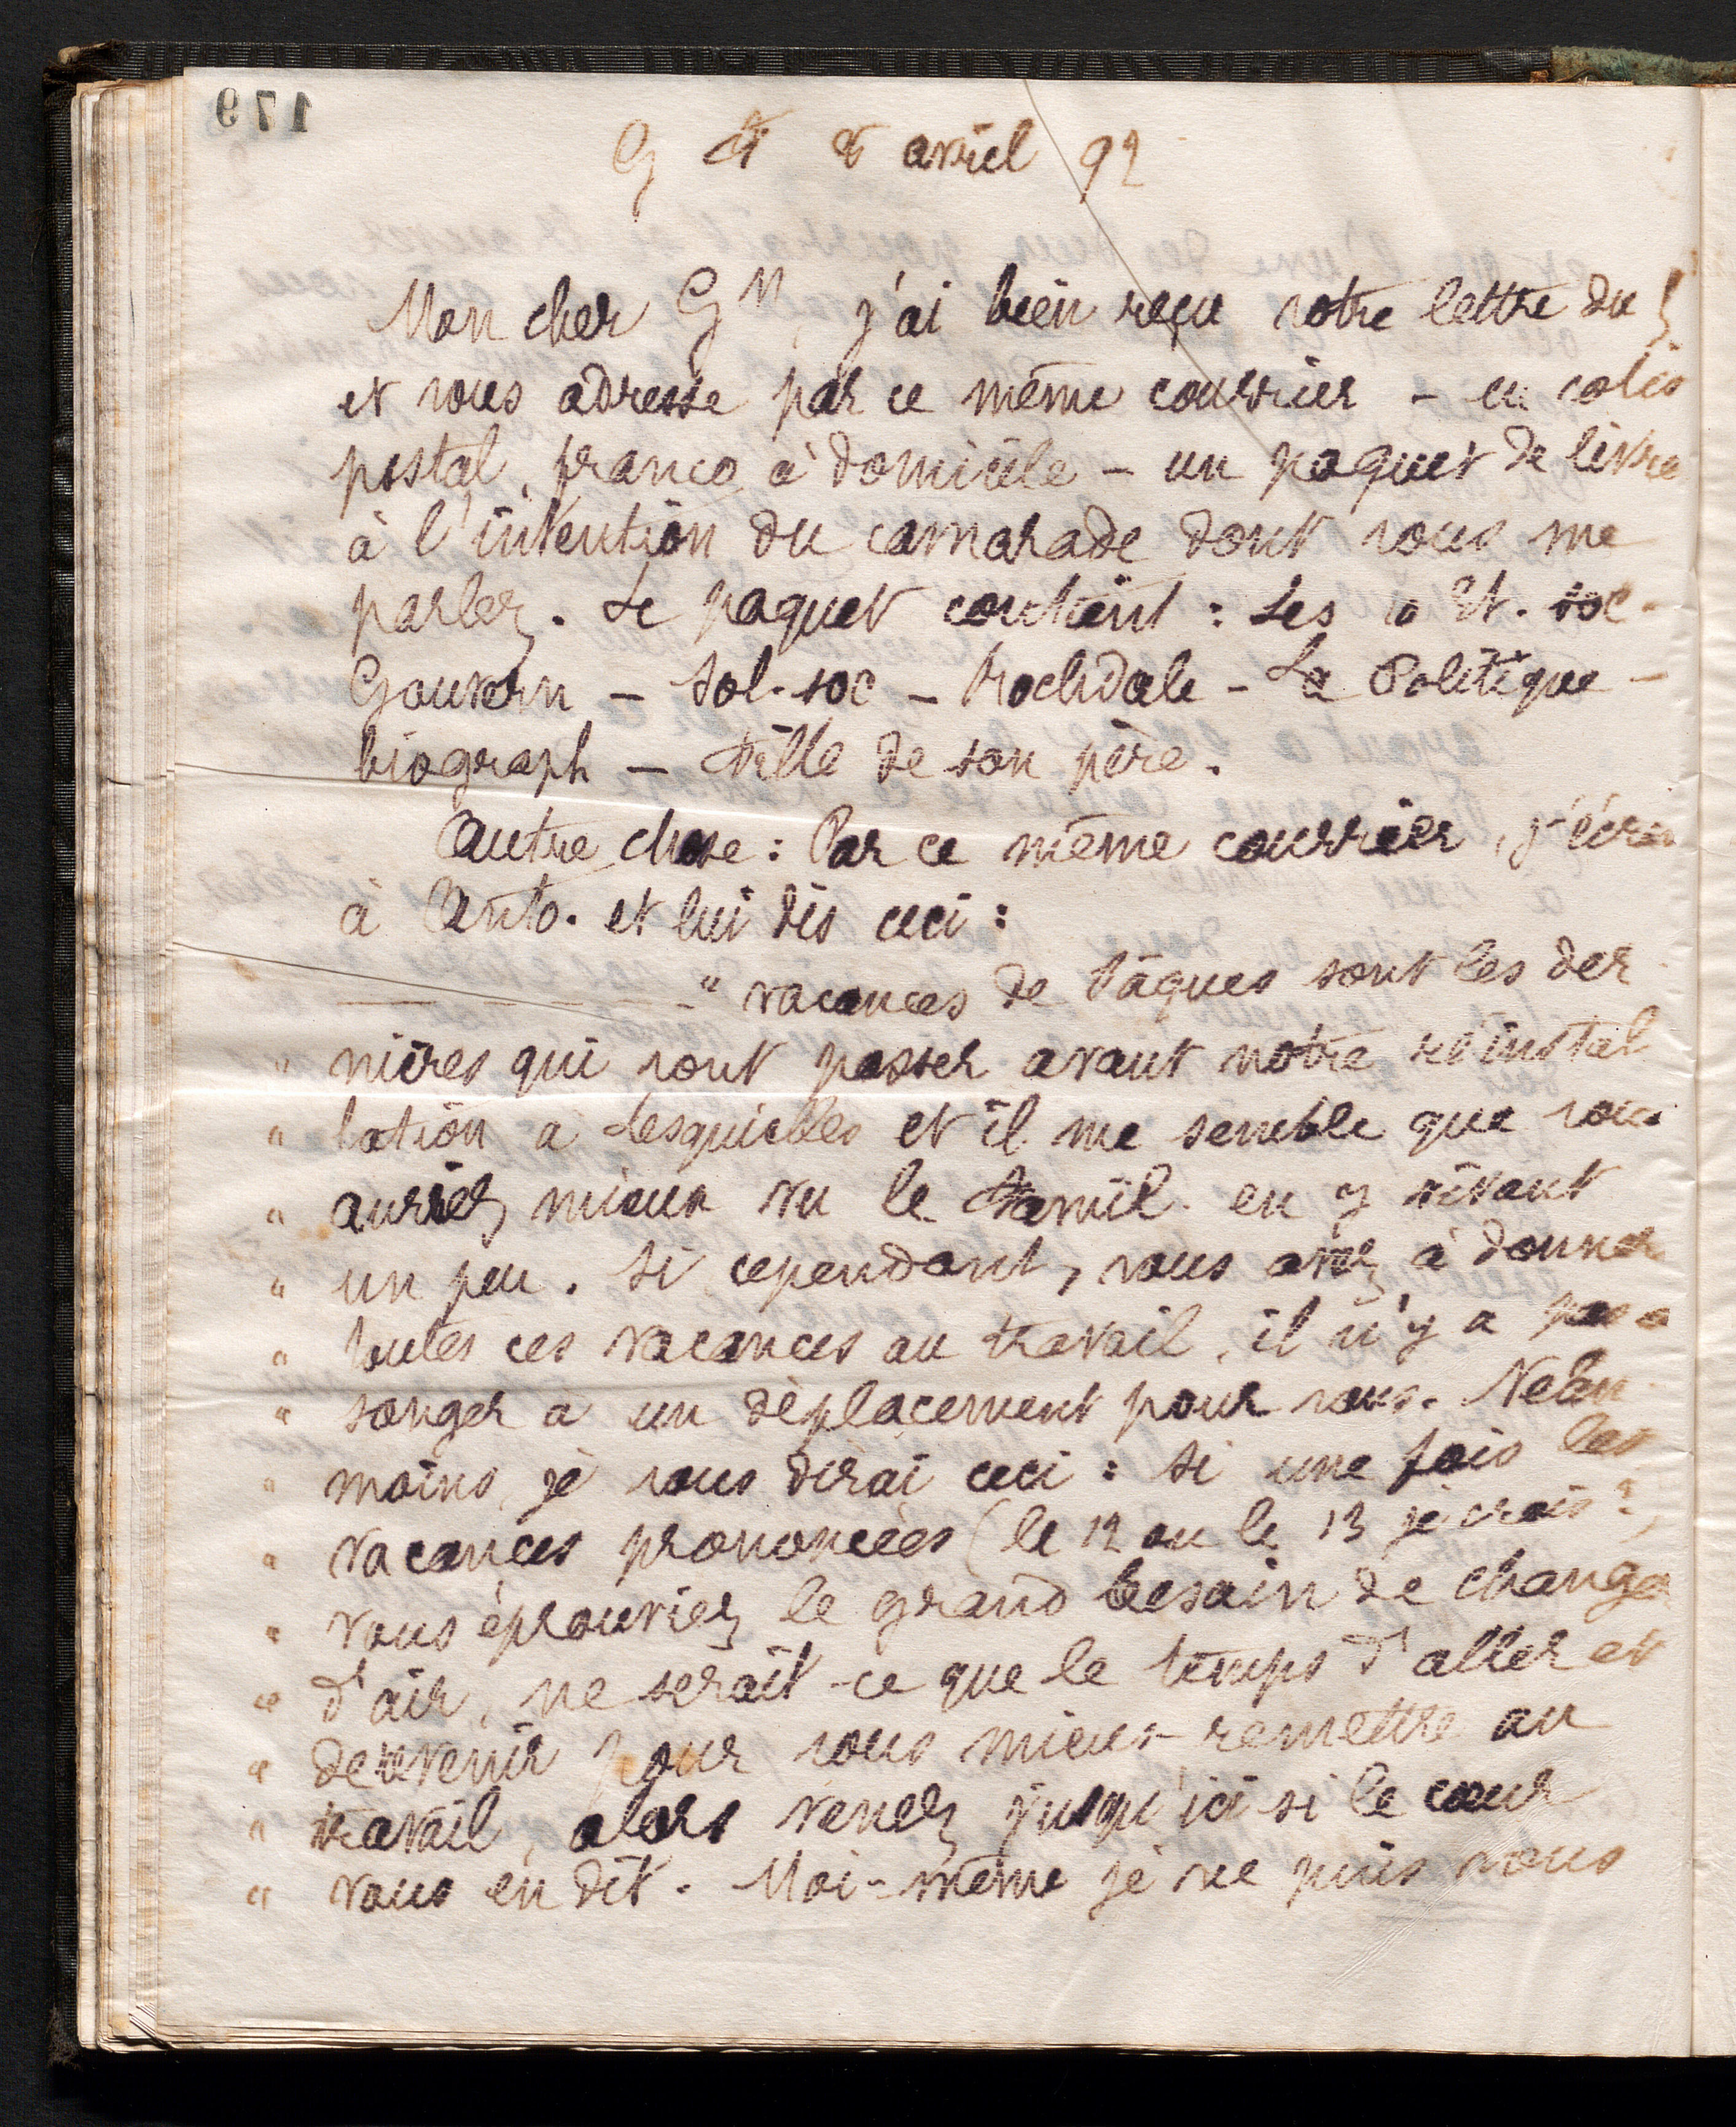 179
G 8 avril 92
Mon cher Gn j'ai bien reçu votre lettre du 5
et vous adresse par ce même courrier - en colis
postal, franco à domicile - un paquet de livre
à l'intention du camarade dont vous me
parlez. Le paquet contient : Les Et. soc -
Gouvern - Sol. soc - Rochdale - La Politique -
biograph - Fille de son père.
Autre chose : Par ce même courrier, j'écris
à Anto. et lui dis ceci :
" vacances de Pâques sont les der
" nières qui vont passer avant notre réinstal
" lation à Lesquielles et il me semble que vous
" auriez mieux vu le Famil. en y vivant
" un peu. Si cependant, vous avez à donner
" toutes ces vacances au travail, il n'y a pas à
" songer à un déplacement pour vous. Néan
" moins, je vous dirai ceci : Si une fois les
" vacances prononcées (le 12 ou le 13 je crois ?)
" vous éprouviez le grand besoin de changer
" d'air, ne serait-ce que le temps d'aller et
" de revenir pour vous mieux remettre au
" travail, alors venez jusqu'ici si le cœur
" vous en dit. Moi-même je ne puis vous